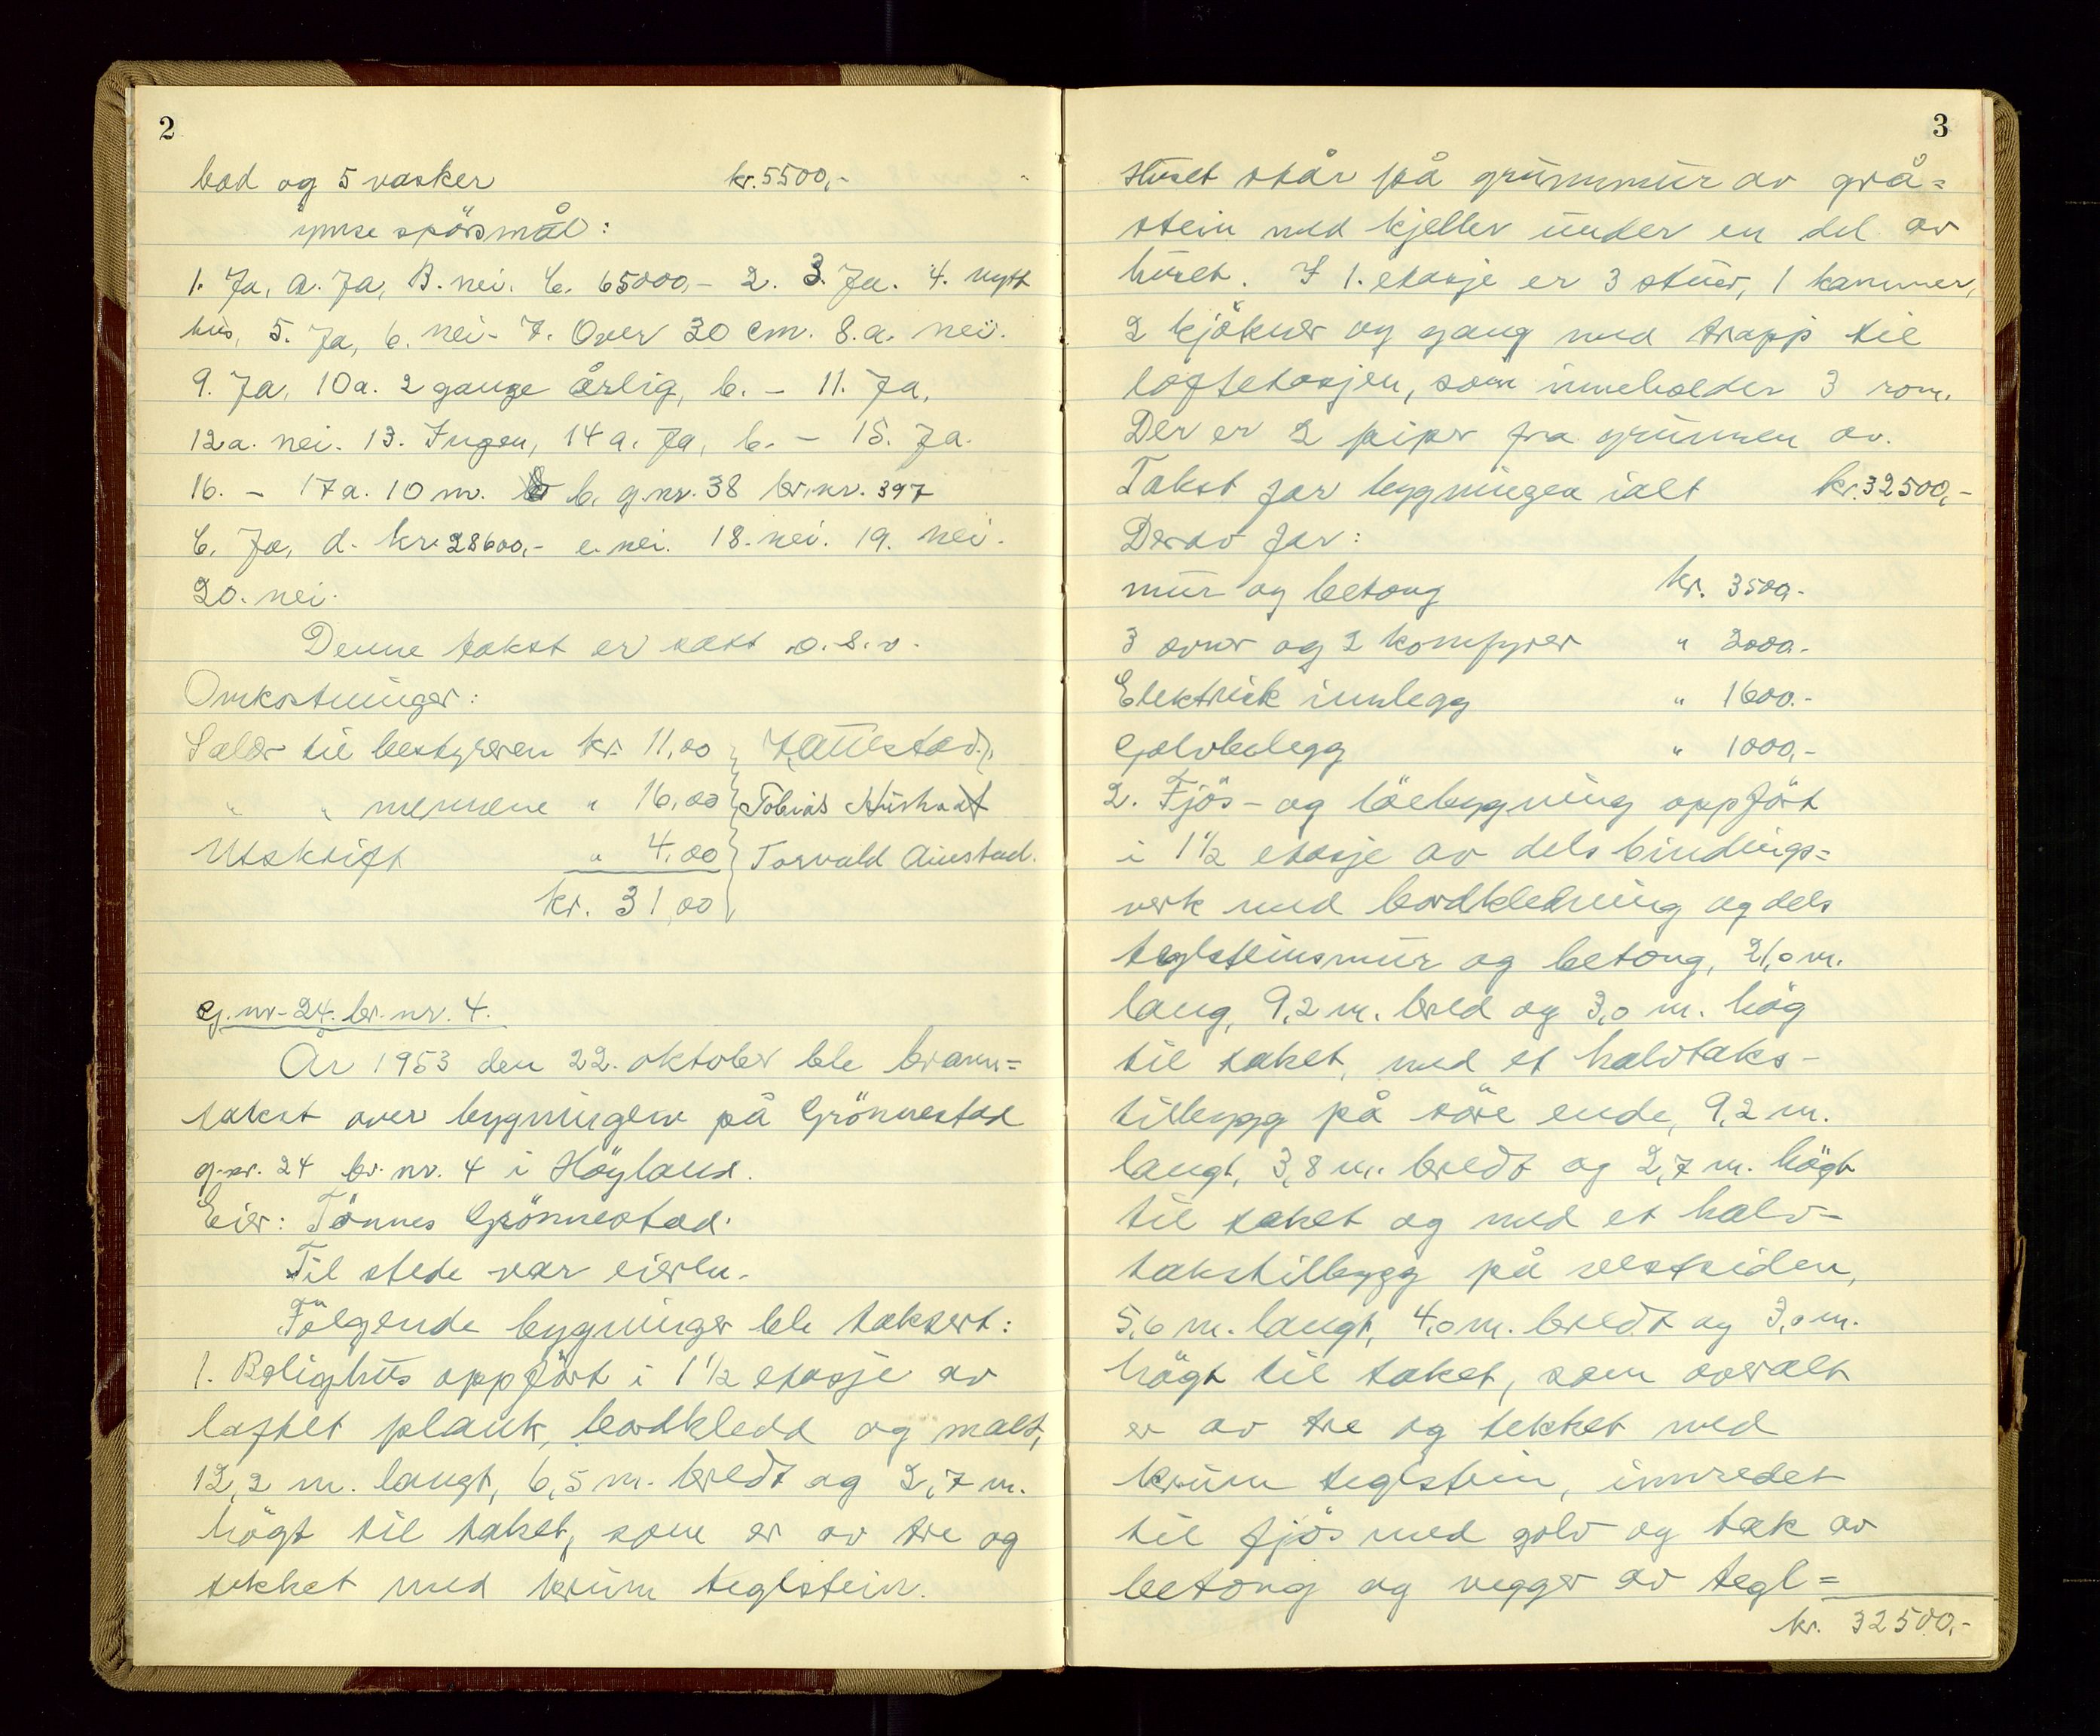 2
bad og 5 vasker kr. 5500,-
ymse spörsmål:
1. Ja, a. Ja, B. nei. C. 65000,- 2. 3. Ja. 4. nytt
hus, 5. Ja, 6. nei- 7. Over 30 cm. 8.a. nei.
9. Ja, 10a. 2 gange årlig, b. - 11. Ja,
12a. nei. 13. Ingen, 14a. Ja, b. - 15. Ja.
16. - 17a. 10 m. b. g.nr. 38 br.nr. 397
C. Ja, d. kr. 28600,- e. nei. 18. nei. 19. nei.
20. nei.
Denne takst er satt o.s.v.
Omkostninger:
Salær til bestyreren kr. 11,00
" " mennene " 16,00 Tobias
Utskrift " 4,00 Torvald Austad.
kr. 31,00
g.nr. 24. br. nr. 4.
År 1953 den 22. oktober ble brann=
takst over bygningene på Grönnestad
g.nr. 24 br. nr. 4 i Höyland.
Eier: Tönnes Grönnestad.
Til stede var eieren.
Fölgende bygninger ble taksert:
1. Bolighus oppfört i 1 1/2 etasje av
laftet plank, bordkledd og malt,
12,2 m. langt, 6,5 m. bredt og 2,7 m.
högt til taket, som er av tre og
tekket med krum teglstein.
3
Huset står på grunnmur av grå=
stein med kjeller under en del av
huset. I 1. etasje er 3 stuer, 1 kammer,
2 kjökner og gang med trapp til
loftetasjen, som inneholder 3 rom.
Der er 2 piper fra grunnen av.
Takst for bygningen ialt kr. 32500,-
Derav for:
mur og betong kr. 3500.-
3 ovner og 2 komfyrer " 2000.-
Elektrisk innlegg " 1600.-
Golvbelegg " 1000,-
2. Fjös- og löebygning oppfört
i 1 1/2 etasje av dels bindings=
verk med bordkledning og dels
teglsteinsmur og betong, 21,0 m.
lang, 9,2 m. bred og 3,0 m. hög
til taket, med et halvtaks-
tilbygg på söre ende, 9,2 m.
langt, 3,8 m. bredt og 2,7 m. högt
til taket og med et halv-
takstilbygg på vestsiden,
5,6 m. langt, 4,0 m. bredt og 3,0 m.
högt til taket, som overalt
er av tre og tekket med
krum teglstein, innredet
til fjös med golv og tak av
betong og vegger av tegl=
kr. 32500,-